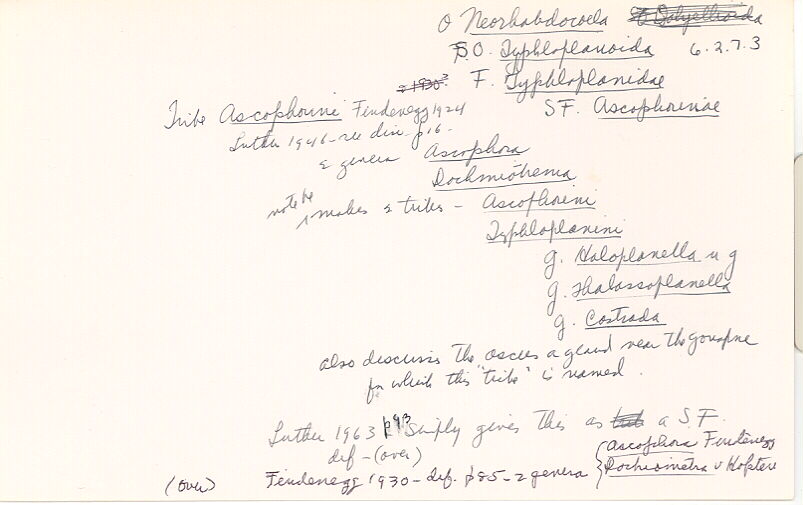 O Neorhabdocoela Dalyellioida
S.O. Typhloplanoida 6.2.7.3
1930 F. Typhloplanidae
Tribe Ascophorini Findenegg 1924 SF. Ascophorinae
Luther 1946 - see din p16.
2 genera Ascophora
Dochmiotrema
note he makes 2 tribes - Ascophorini
Typhloplanini
g. Haloplanella n g
g. Thalassoplanella
g. Castrada
also discusses the ascus a gland near the gonopore
for which this "tribe" is named.
Luther 1963 p93 simply gives this as a S.F.
def - (over)
(over) Findenegg 1930 - def. p85 - 2 genera { Ascophora Findenegg
Dochmiotrema v Hofsten